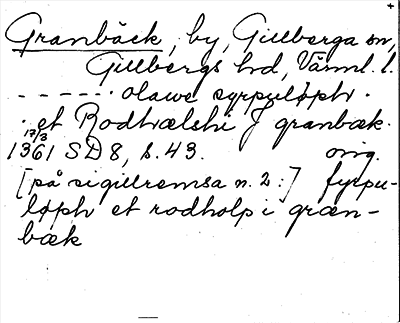 Granbäck, by, Gillberga sn,
Gillbergs hd, Värml. l.
- - - - - - olawe syrpuløph.
. et Rodhælshi J granbæk.
17/3
1361 SD 8, s. 43. orig.
[på sigillremsa n. 2:] fyrpu-
løph et rodholp i græn-
bæk